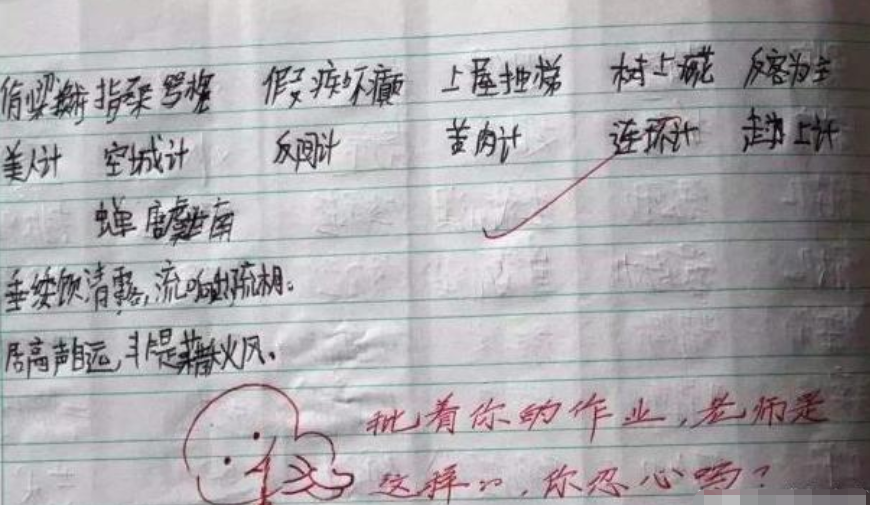 偷梁换柱 指桑骂槐 假痴不癫 上屋抽梯 树上开花 反客为主
美人计 空城计 反间计 苦肉计 连环计 走为上计
蝉 唐 虞世南
垂緌饮清露,流响出疏桐。
居高声自远,非是藉秋风。
批着你的作业,老师是
这样的,你忍心吗?